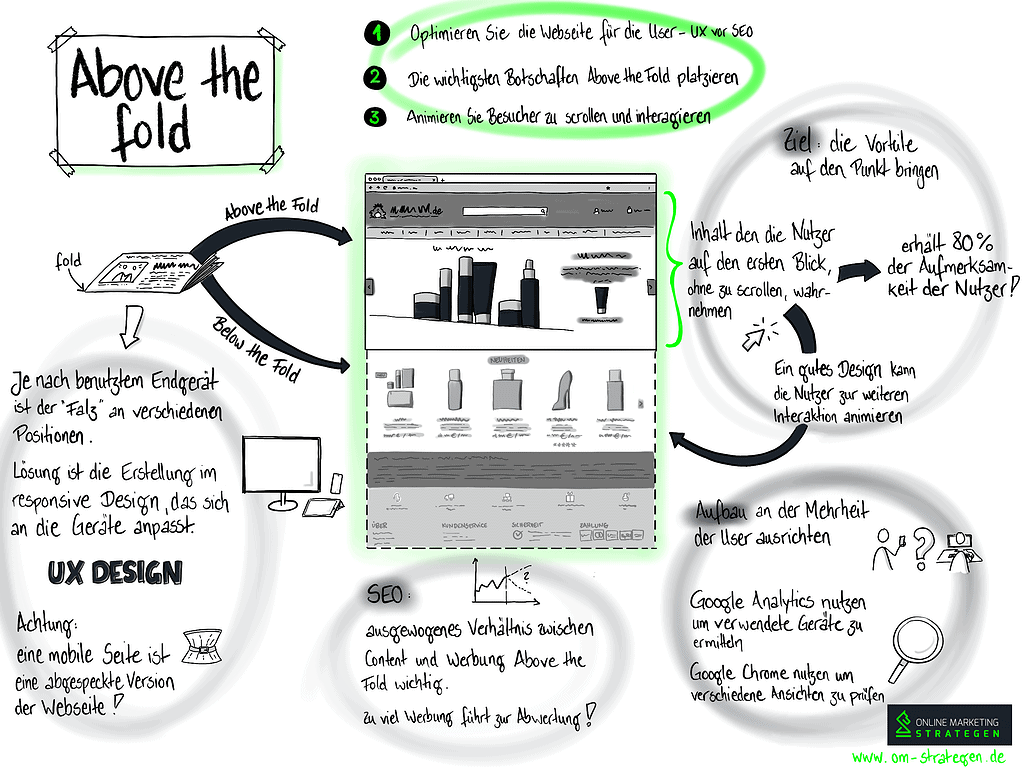 Above the
fold
1 Optimieren Sie die Webseite für die User - UX vor SEO
2 Die wichtigsten Botschaften Above the Fold platzieren
3 Animieren Sie Besucher zu scrollen und interagieren
Above the Fold
fold
Below the Fold
.de
NEUHEITEN
ÜBER
KUNDENSERVICE
SICHERHEIT
ZAHLUNG
Ziel: die Vorteile
auf den Punkt bringen
Inhalt den die Nutzer
auf den ersten Blick,
ohne zu scrollen, wahr-
nehmen
erhält 80%
der Aufmerksam-
keit der Nutzer!
Ein gutes Design kann
die Nutzer zur weiteren
Interaktion animieren
Je nach benutztem Endgerät
ist der "Falz" an verschiedenen
Positionen.
Lösung ist die Erstellung im
responsive Design, das sich
an die Geräte anpasst.
UX DESIGN
Achtung:
eine mobile Seite ist
eine abgespeckte Version
der Webseite!
SEO:
?
ausgewogenes Verhältnis zwischen
Content und Werbung Above the
Fold wichtig.
zu viel Werbung führt zur Abwertung!
Aufbau an der Mehrheit
der User ausrichten
?
Google Analytics nutzen
um verwendete Geräte zu
ermitteln
Google Chrome nutzen um
verschiedene Ansichten zu prüfen
ONLINE MARKETING
STRATEGEN
www.om-strategen.de